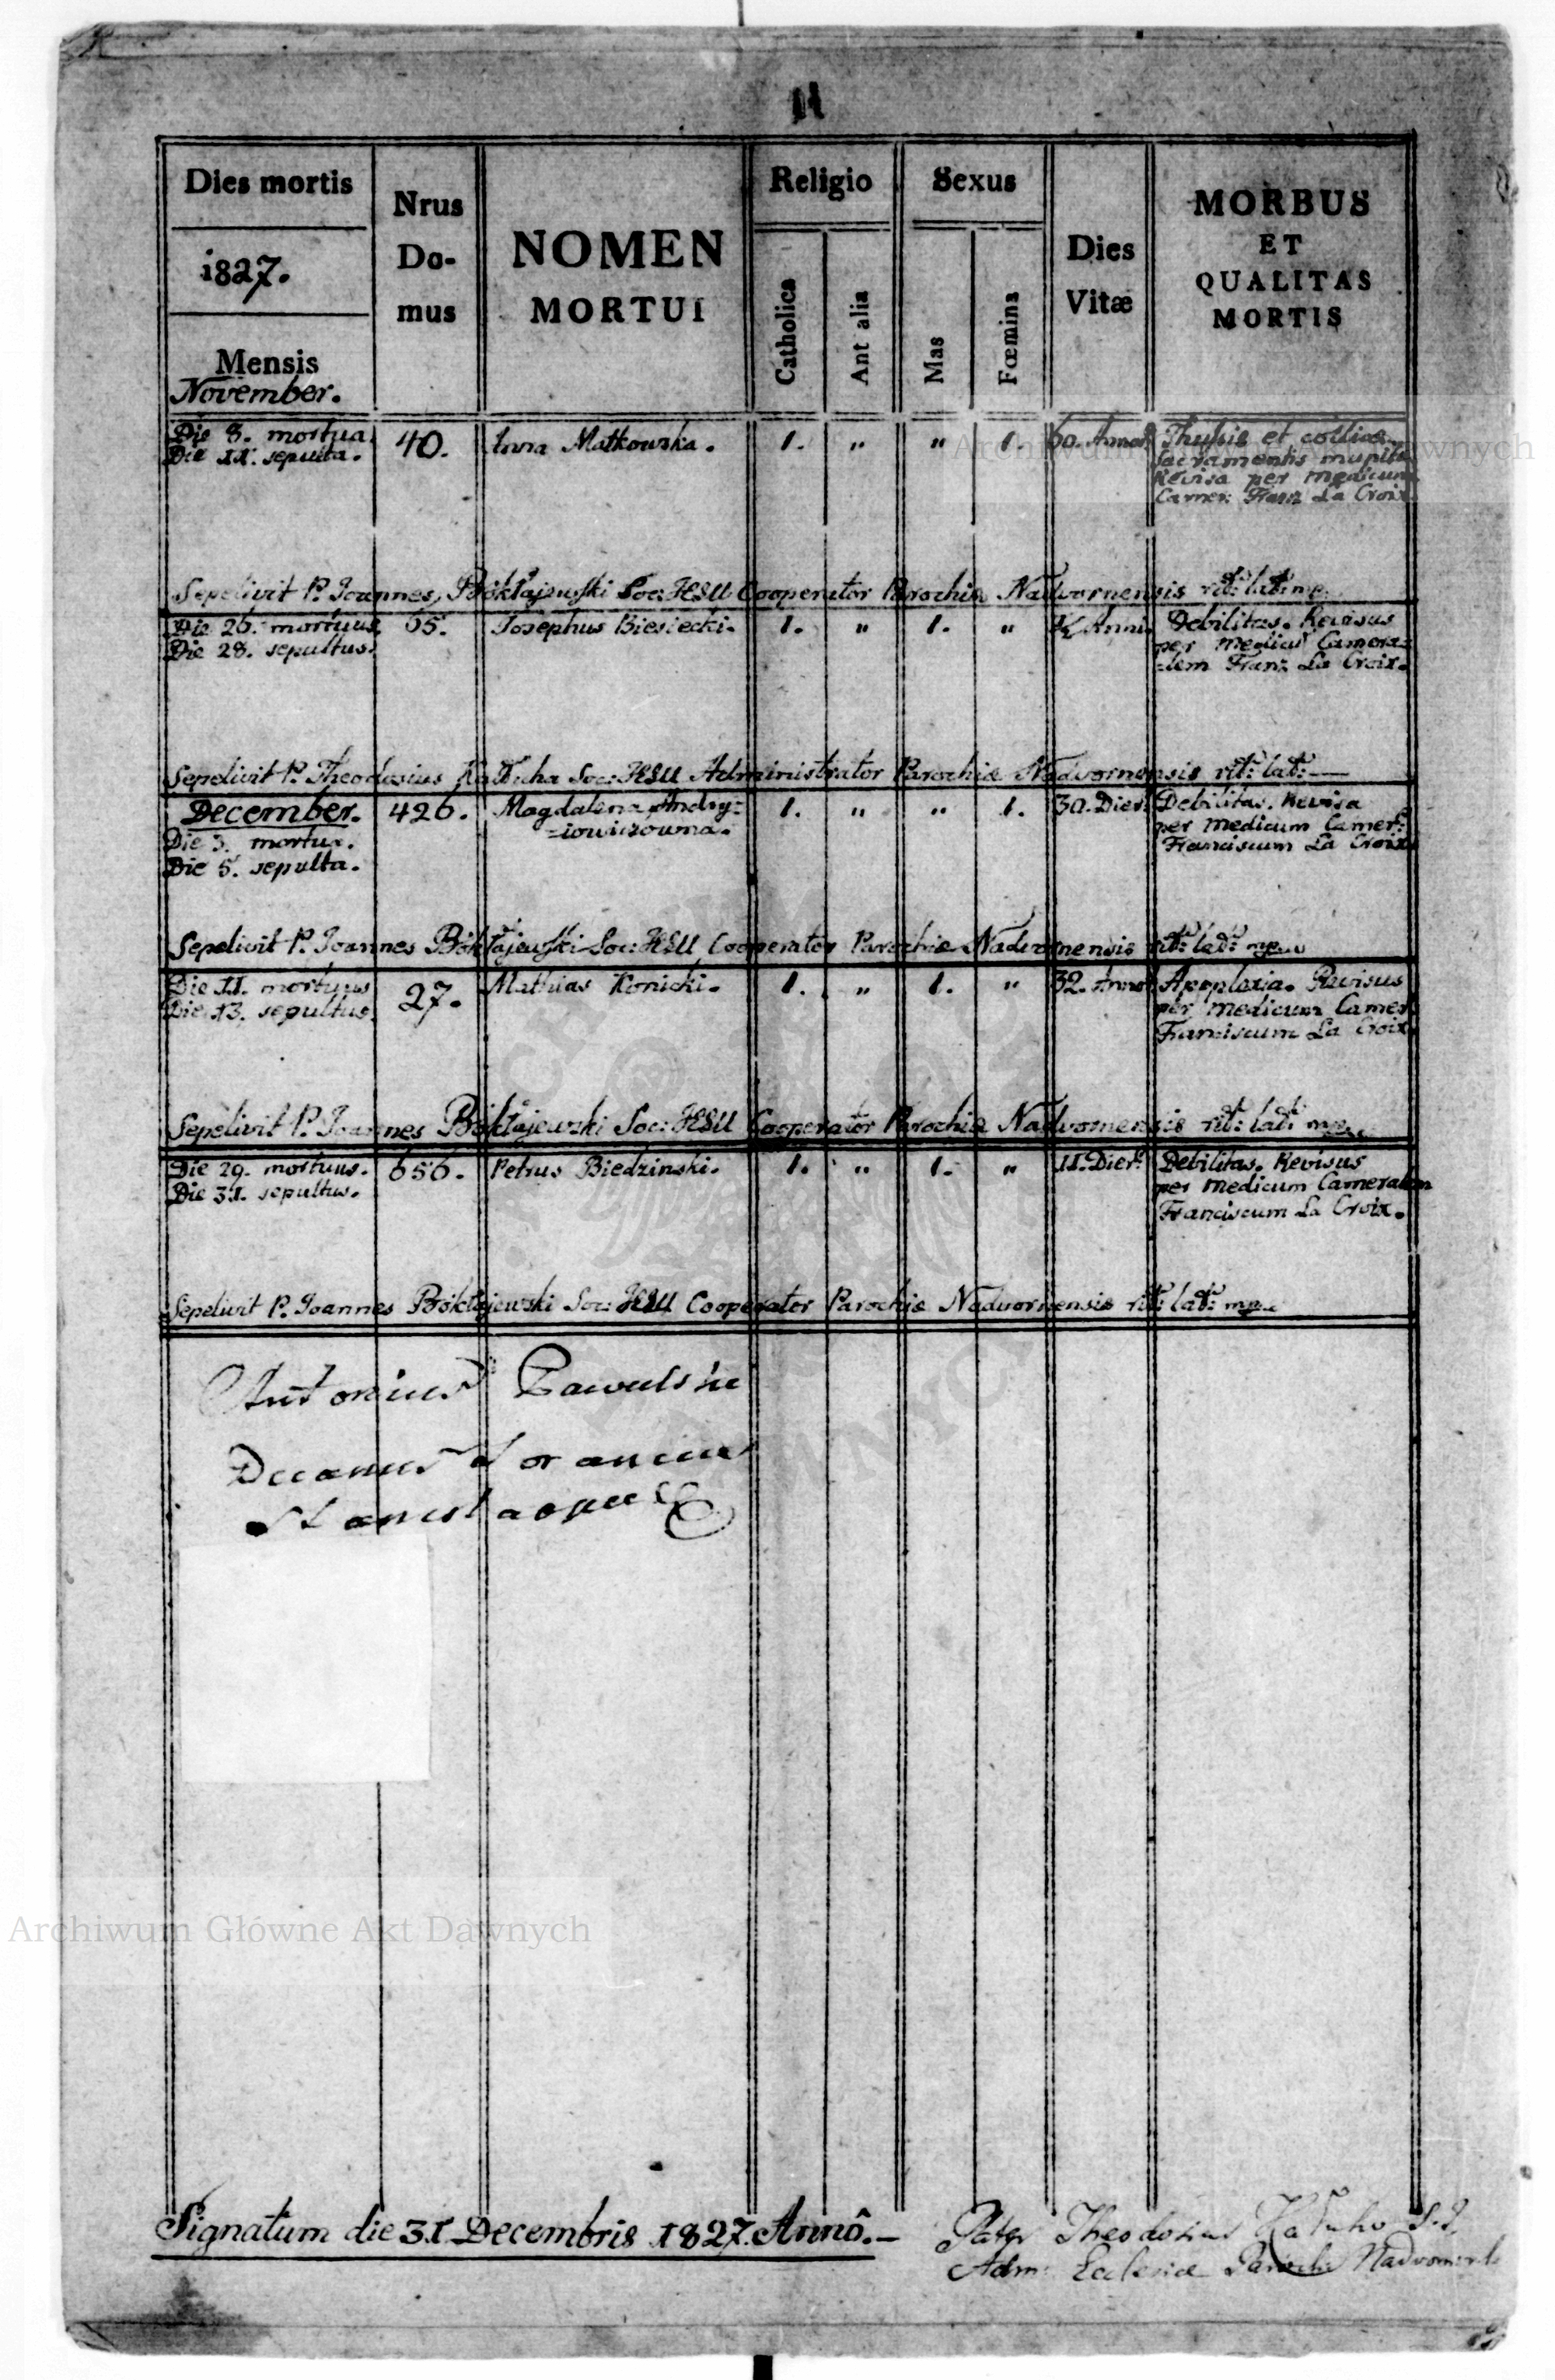 11
Dies mortis
1827.
Mensis
November.
Nrus
Do-
mus
NOMEN
MORTUI
Religio
Catholica
Ant alia
Sexus
Mas
Fœmina
Dies
Vitæ
MORBUS
ET
QUALITAS
MORTIS
Die 8. mortua. 40. Anna Matkowska. 1. „ „ 1. 60. Annor:
Die 11. sepulta.
Thysis et collica.
Sacramentis munita
Revisa per medicum
Camer: Franz La Croix
Sepelivit P. Joannes Bókłajewski Soc: JESU Cooperator Parochiæ Nadvornensis rit: lat: mp.
Die 26. mortuus. 65. Josephus Biesiecki. 1. „ 1. „ ½ Anni.
Die 28. sepultus.
Debilitas. Revisus
per medicum Camera=
=lem Franz La Croix.
Sepelivit P. Theodosius Soc: JESU Administrator Parochiæ Nadvornensis rit: lat:
December. 426. Magdalena Andry=
=iowiczowna. 1. „ „ 1. 30. Dier:
Die 3. mortua.
Die 5. sepulta.
Debilitas. Revisa
per medicum Camer:
Franciscum La Croix
Sepelivit P. Joannes Bókłajewski Soc: JESU Cooperator Parochiæ Nadvornensis rit: lat: mp.
Die 11. mortuus 27. Mathias Konicki. 1. „ 1. „ 32. Annor
Die 13. sepultus.
Apoplexia. Revisus
per medicum Camer:
Franciscum La Croix
Sepelivit P. Joannes Bókłajewski Soc: JESU Cooperator Parochiæ Nadvornensis rit: lat: mp.
Die 29. mortuus. 656. Petrus Biedzinski. 1. „ 1. „ 11. Dier:
Die 31. sepultus.
Debilitas. Revisus
per medicum Cameralem
Franciscum La Croix.
Sepelivit P. Joannes Bókłajewski Soc: JESU Cooperator Parochiæ Nadvornensis rit: lat: mp.
Antonius
Decanus
Signatum die 31. Decembris 1827. Annô.
Pater Theodosius S.J.
Adm: Ecclesiæ
Archiwum Główne Akt Dawnych
Archiwum Główne Akt Dawnych